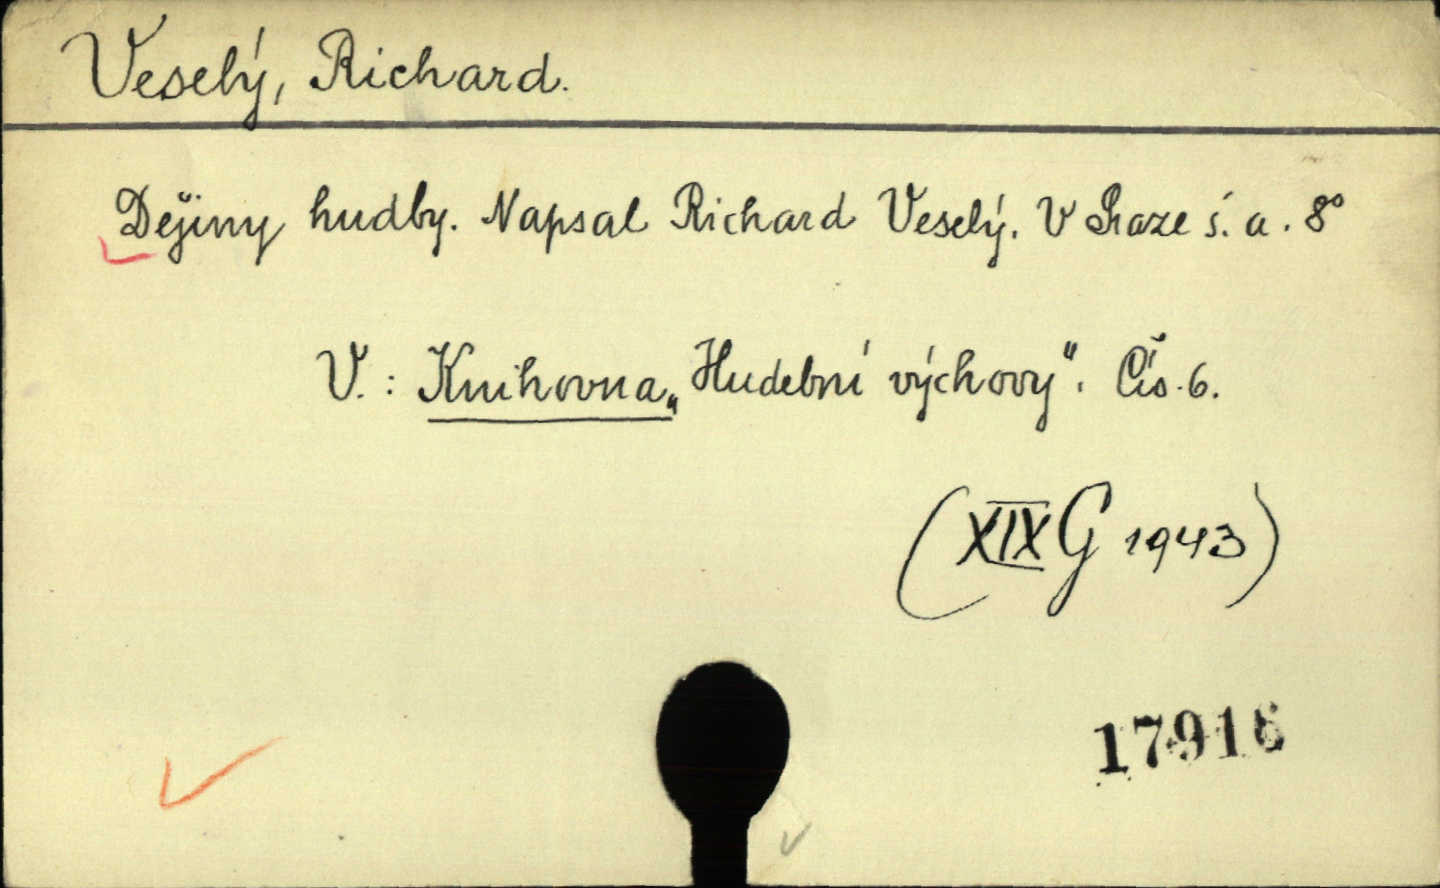 Veselý, Richard.
Dějiny hudby. Napsal Richard Veselý. V Praze s. a. 8°
V.: Knihovna „Hudební výchovy". Čís. 6.
(XIX G 1943)
17916